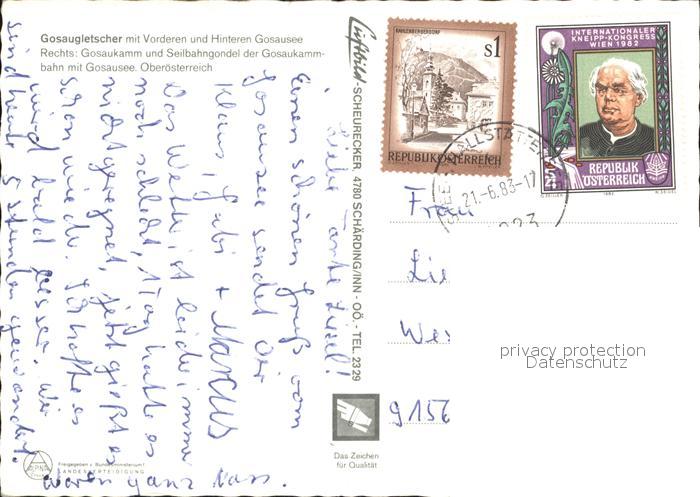 Gosaugletscher mit Vorderen und Hinteren Gosausee
Rechts: Gosaukamm und Seilbahngondel der Gosaukamm-
bahn mit Gosausee. Oberösterreich
Liebe Tante Liesl!
Einen schönen Gruß vom
Gosausee sendet Dir
Klaus, Gabi + MARKUS
Das Wetter ist leider immer
noch schlecht, 1 Tag hatte es
nicht geregnet, jetzt gießt es
schon wieder. Ich hoffe es
wird bald besser. Wir
sind heute 5 Stunden gewandert.
waren ganz nass.
Luftbild-SCHEURECKER, 4780 SCHÄRDING/INN - OÖ. - TEL. 2329
KAHLENBERGERDORF
s1
REPUBLIK ÖSTERREICH
INTERNATIONALER
KNEIPP-KONGRESS
WIEN 1982
REPUBLIK
ÖSTERREICH
1982
HALLSTÄTTER
21.-6.83-17
Frau
Lie
We
9156
privacy protection
Datenschutz
Das Zeichen
für Qualität
Freigegeben v. Bundesministerium f.
LANDESVERTEIDIGUNG